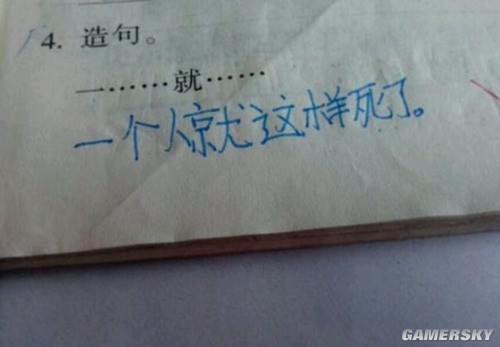 4. 造句。
一……就……
一个人就这样死了。
GAMERSKY